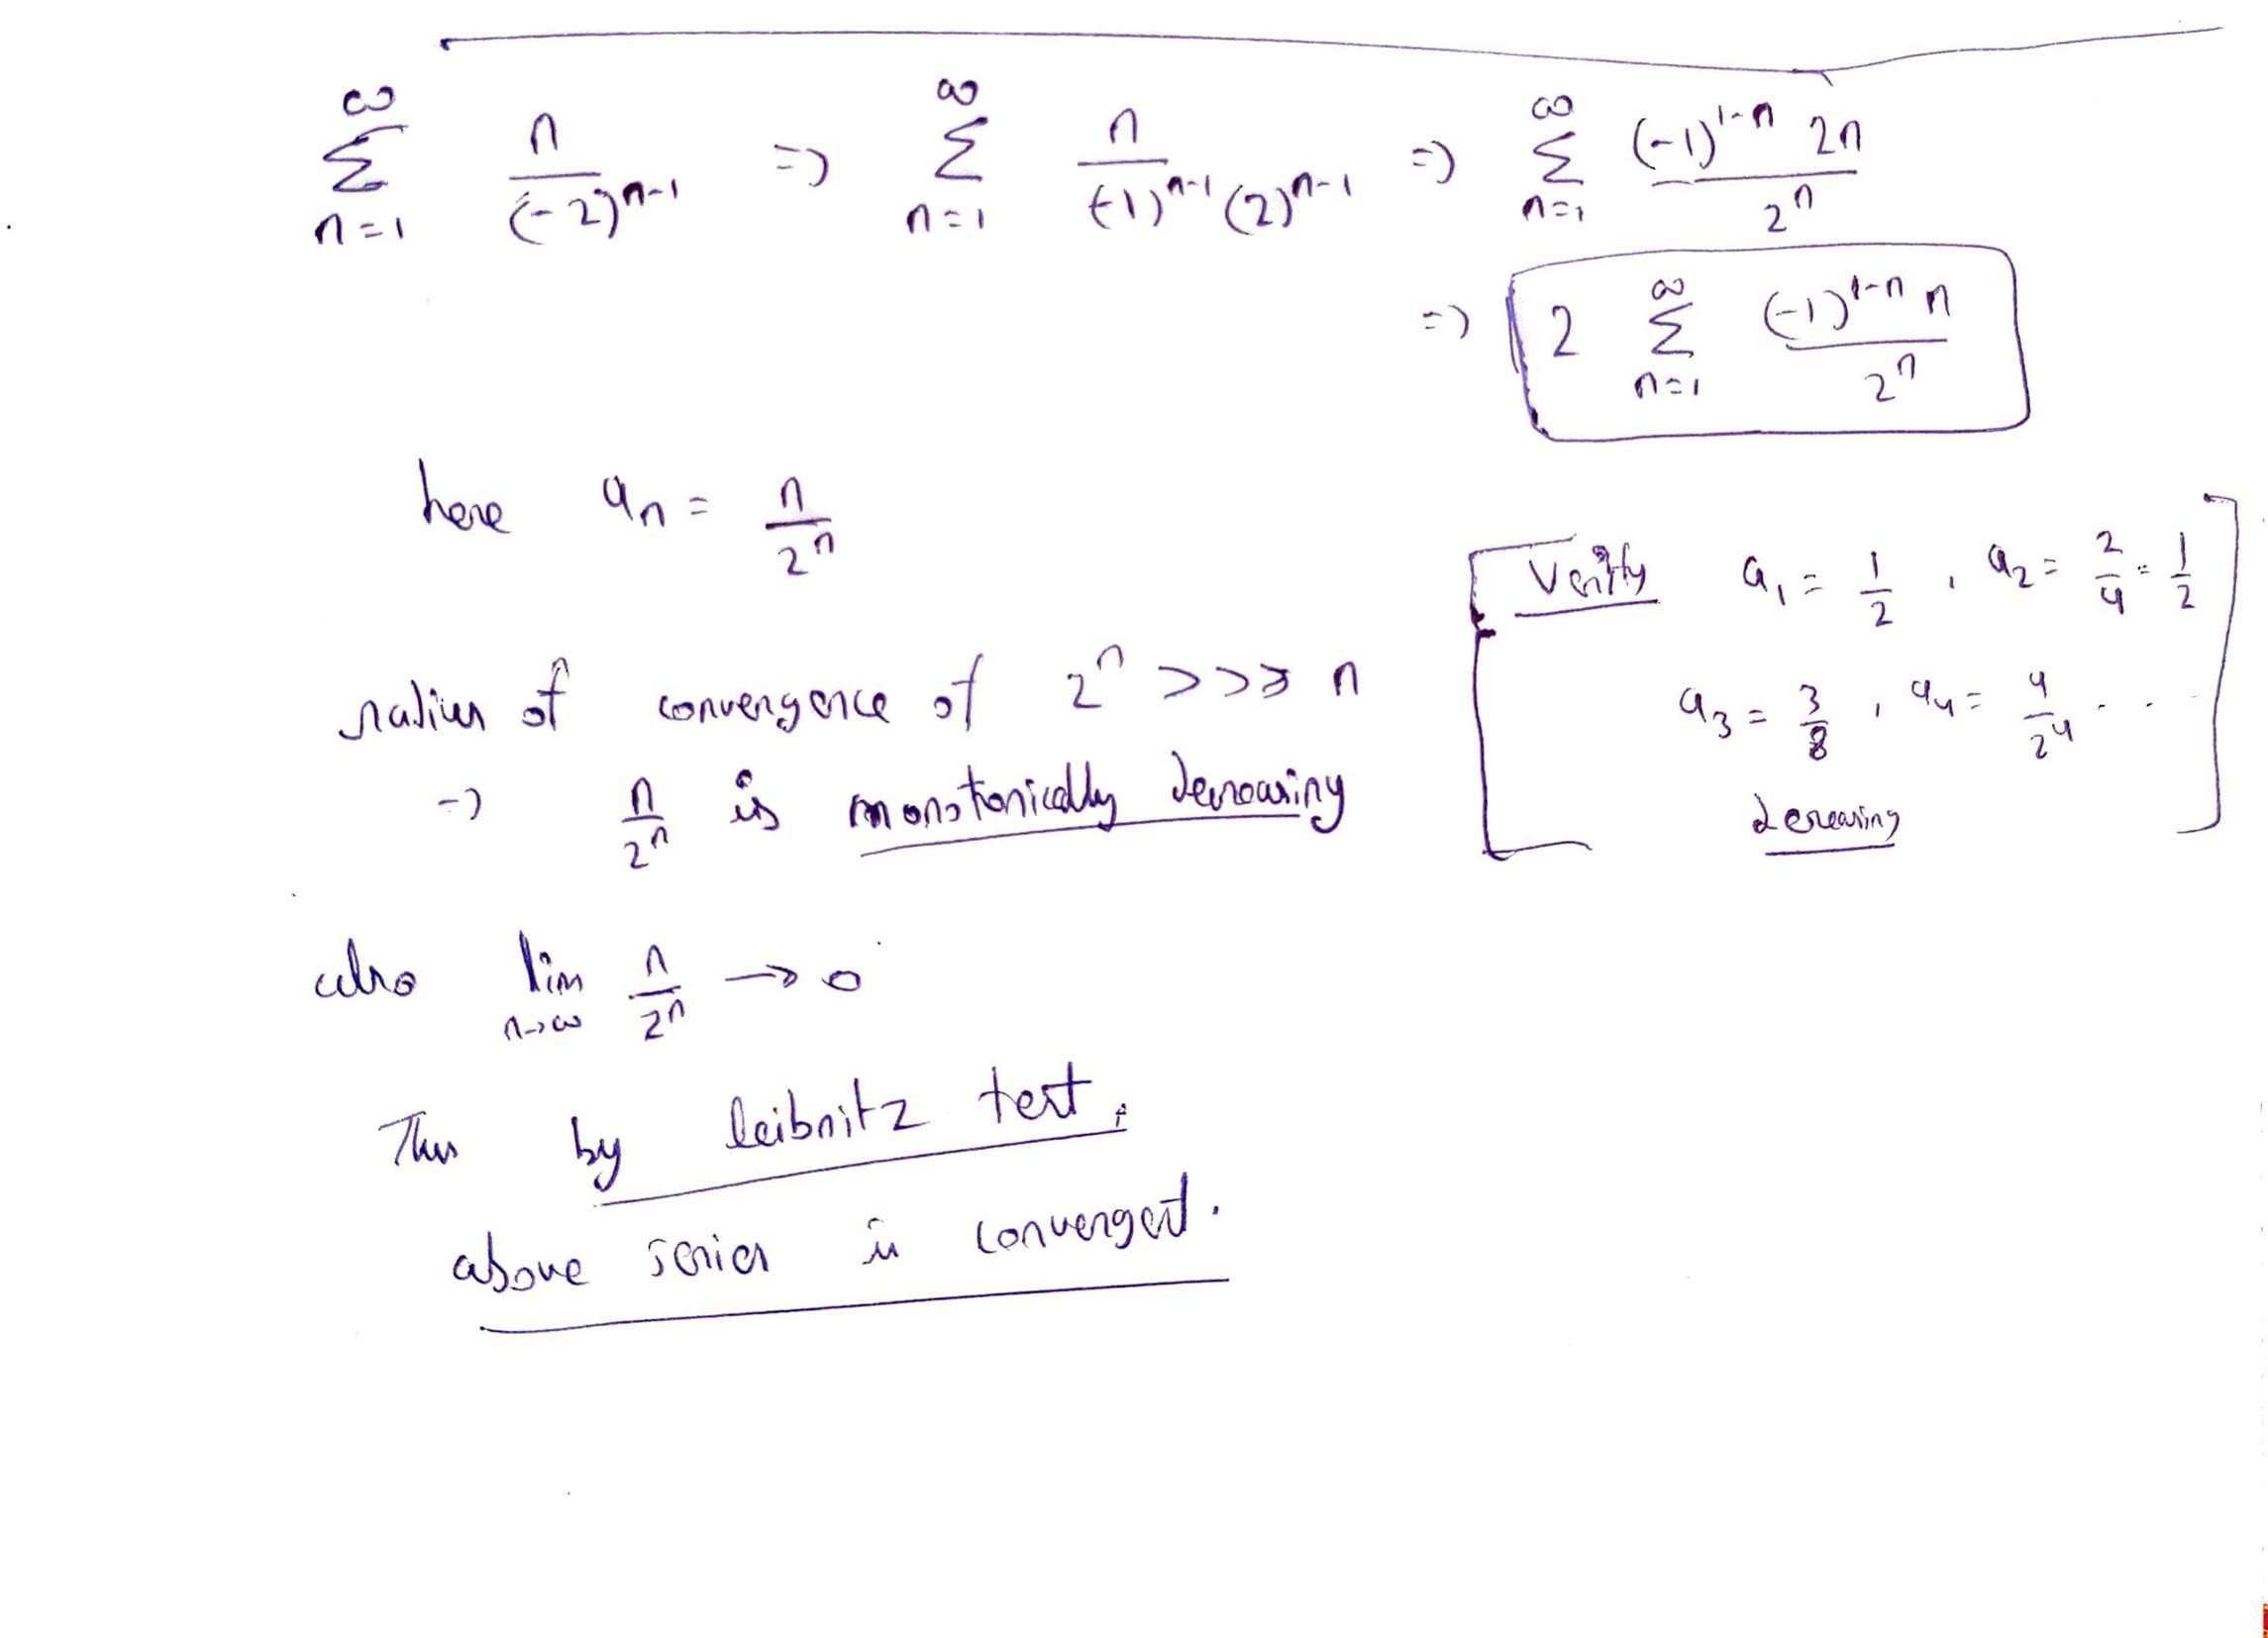 ∞ ∑ n=1 n / (-2)^{n-1} => ∞ ∑ n=1 n / (-1)^{n-1} (2)^{n-1} => ∞ ∑ n=1 (-1)^{1-n} 2n / 2^n
=> 2 ∞ ∑ n=1 (-1)^{1-n} n / 2^n
here a_n = n / 2^n
Verify a_1 = 1/2 , a_2 = 2/4 = 1/2
a_3 = 3/8 , a_4 = 4/2^4 . .
decreasing
radius of convergence of 2^n >>> n
=> n / 2^n is monotonically decreasing
also lim n→∞ n / 2^n → 0
Thus by leibnitz test,
above series is convergent.